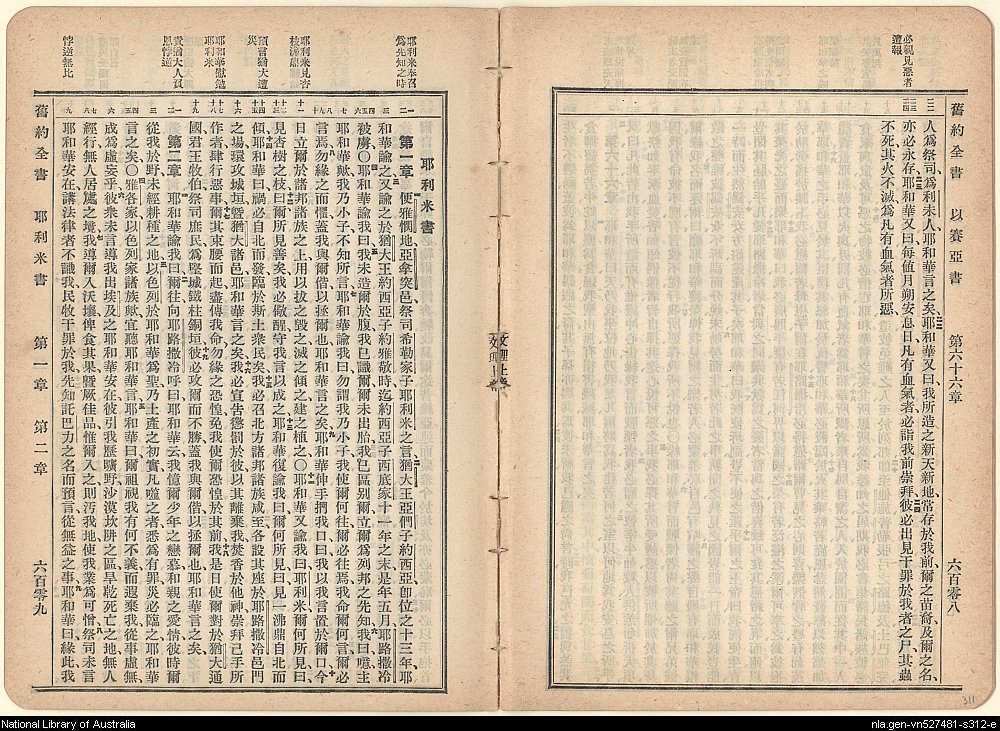 必親見惡者
遭報
舊約全書 以賽亞書 第六十六章 六百零八
人爲祭司爲利未人耶和華言之矣耶和華又曰我所造之新天新地常存於我前爾之苗裔及爾之名
亦必永存耶和華又曰每値月朔安息日凡有血氣者必詣我前崇拜彼必出見干罪於我者之尸其蟲
不死其火不滅爲凡有血氣者所惡
文理上卷
耶利米奉召
爲先知之時
耶利米見杏
枝沸鼎
預言猶大遭
災
耶和華慰勉
耶利米
責猶大人負
恩悖逆
悖逆無比
耶利米書
第一章 便雅憫地亞拿突邑祭司希勒家子耶利米之言猶大王亞們子約西亞卽位之十三年耶
和華諭之又諭之於猶大王約西亞子約雅敬時迄約西亞子西底家十一年之末是年五月耶路撒冷
被虜〇耶和華諭我曰我未造爾於腹我已識爾爾未出胎我已區別爾立爾爲列邦之先知我曰噫主
耶和華歟我乃小子不知所言耶和華諭我曰勿謂我乃小子我使爾何往爾必往焉我命爾何言爾必
言焉勿緣之而懼蓋我與爾偕以拯爾也耶和華言之矣耶和華伸手捫我口曰我以我言置於爾口今
日立爾於諸邦諸族之上用以拔之毀之滅之傾之建之植之〇耶和華又諭我曰耶利米爾何所見曰
見杏樹之枝曰爾所見善矣我必儆醒守我言以成之耶和華復諭我曰爾何所見曰見一沸鼎自北而
傾耶和華曰禍必自北而發臨於斯土衆民矣我必召北方諸邦諸族咸至各設其座於耶路撒冷邑門
之場環攻城垣曁猶大諸邑耶和華言之矣我必宣告懲罰於彼以其離棄我焚香於他神崇拜己手所
作者肆行惡事爾其束腰而起盡傳我命勿緣之恐惶免我使爾恐惶於其前我是日使爾對於猶大通
國君王牧伯祭司庶民爲堅城鐵柱銅垣彼必攻爾而不勝蓋我與爾偕以拯爾也耶和華言之矣
第二章 耶和華諭我曰爾往向耶路撒冷呼曰耶和華云我憶爾少年之戀慕和親之愛情彼時爾
從我於野未經耕種之地以色列於耶和華爲聖乃土產之初實凡噬之者悉爲有罪災必臨之耶和華
言之矣〇雅各家以色列家諸族歟宜聽耶和華言耶和華曰爾祖視我有何不義而遐棄我從事虛無
成爲虛妄乎彼衆未言導我出埃及之耶和華安在彼引我歷曠野沙漠坎阱之區旱乾死亡之地無人
經行無人居處之境我導爾入沃壤俾食其果曁厥佳品惟爾入之則汚我地使我業爲可憎祭司未言
耶和華安在講法律者不識我民牧干罪於我先知託巴力之名而預言從無益之事耶和華曰緣此我
舊約全書 耶利米書 第一章 第二章 六百零九
311
National Library of Australia
nla.gen-vn527481-s312-e